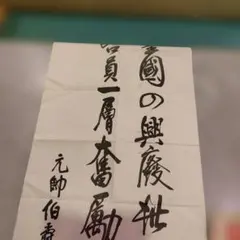 皇國の興廢此
各員一層奮勵
元帥伯